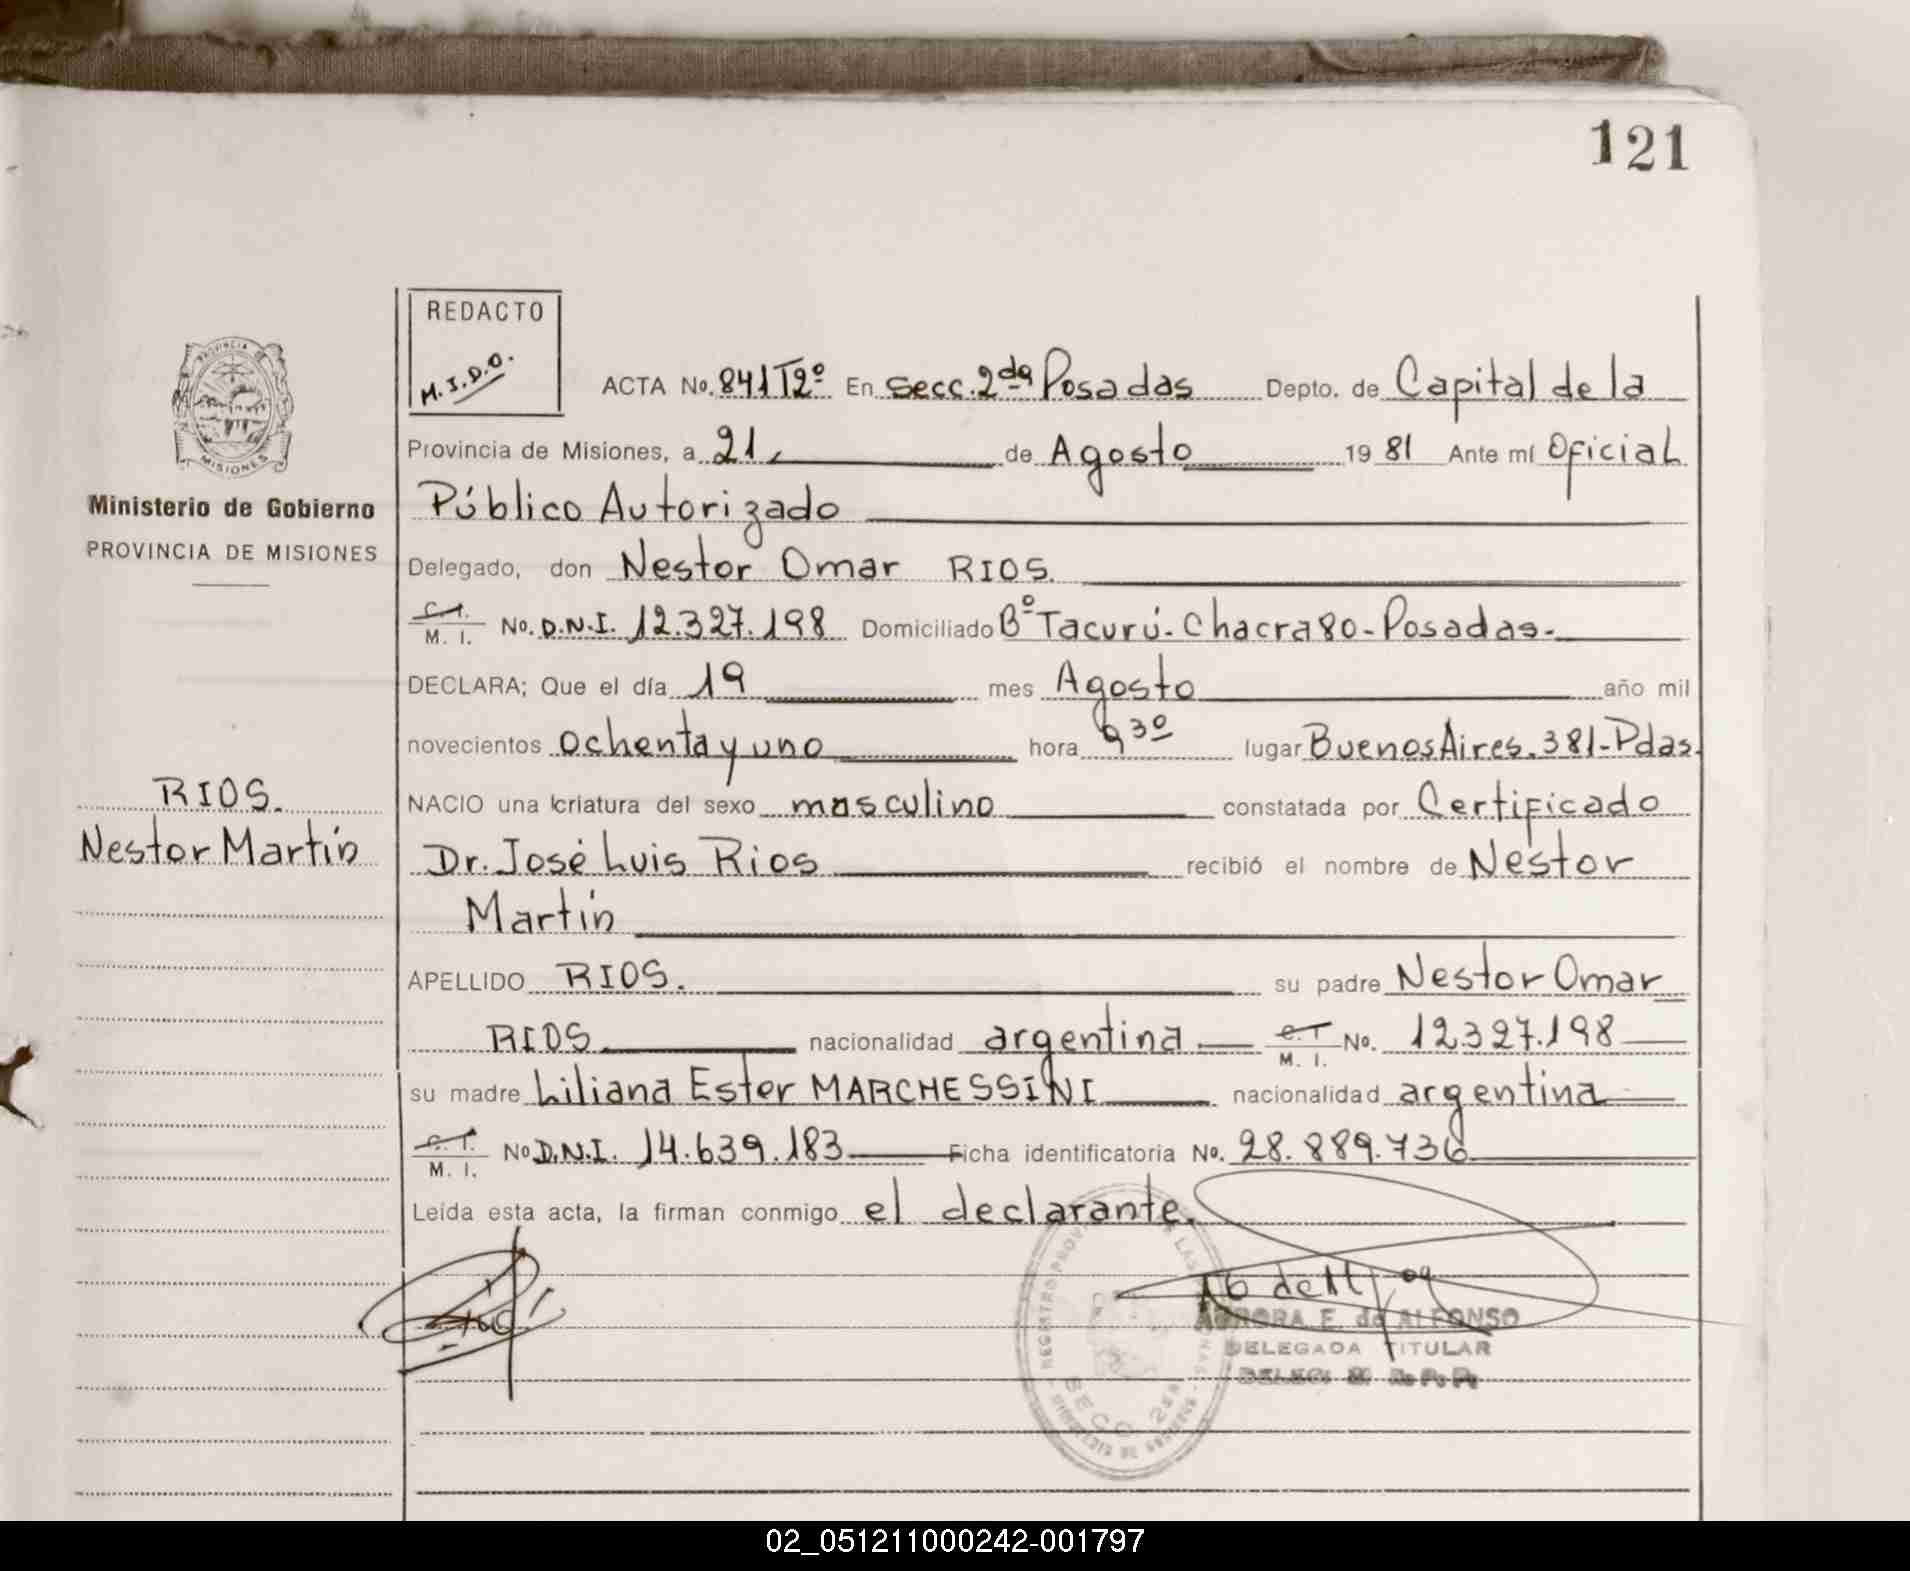 121
REDACTO
M.I.D.O.
ACTA No. 841 T2º En Secc. 2da Posadas Depto. de Capital de la
Provincia de Misiones, a 21, de Agosto 1981 Ante mí Oficial
Público Autorizado
Delegado, don Nestor Omar RIOS.
C.I. M. I. No. D.N.I. 12.327.198 Domiciliado Bº Tacurú. Chacra 80-Posadas.-
DECLARA; Que el día 19 mes Agosto año mil
novecientos ochenta y uno hora 9 30 lugar Buenos Aires. 381-Pdas.
NACIO una criatura del sexo masculino constatada por Certificado
Dr. José Luis Rios recibió el nombre de Nestor
Martín
APELLIDO RIOS. su padre Nestor Omar
RIOS. nacionalidad argentina C.I. M. I. No. 12.327.198
su madre Liliana Ester MARCHESSINI nacionalidad argentina
C.I. M. I. No D.N.I. 14.639.183 Ficha identificatoria No. 28.889.736
Leída esta acta, la firman conmigo el declarante.
PROVINCIA DE
MISIONES
Ministerio de Gobierno
PROVINCIA DE MISIONES
RIOS.
Nestor Martín
REGISTRO PROV DE LAS
SECC. 2da
AURORA E. de ALFONSO
DELEGADA TITULAR
02_051211000242-001797